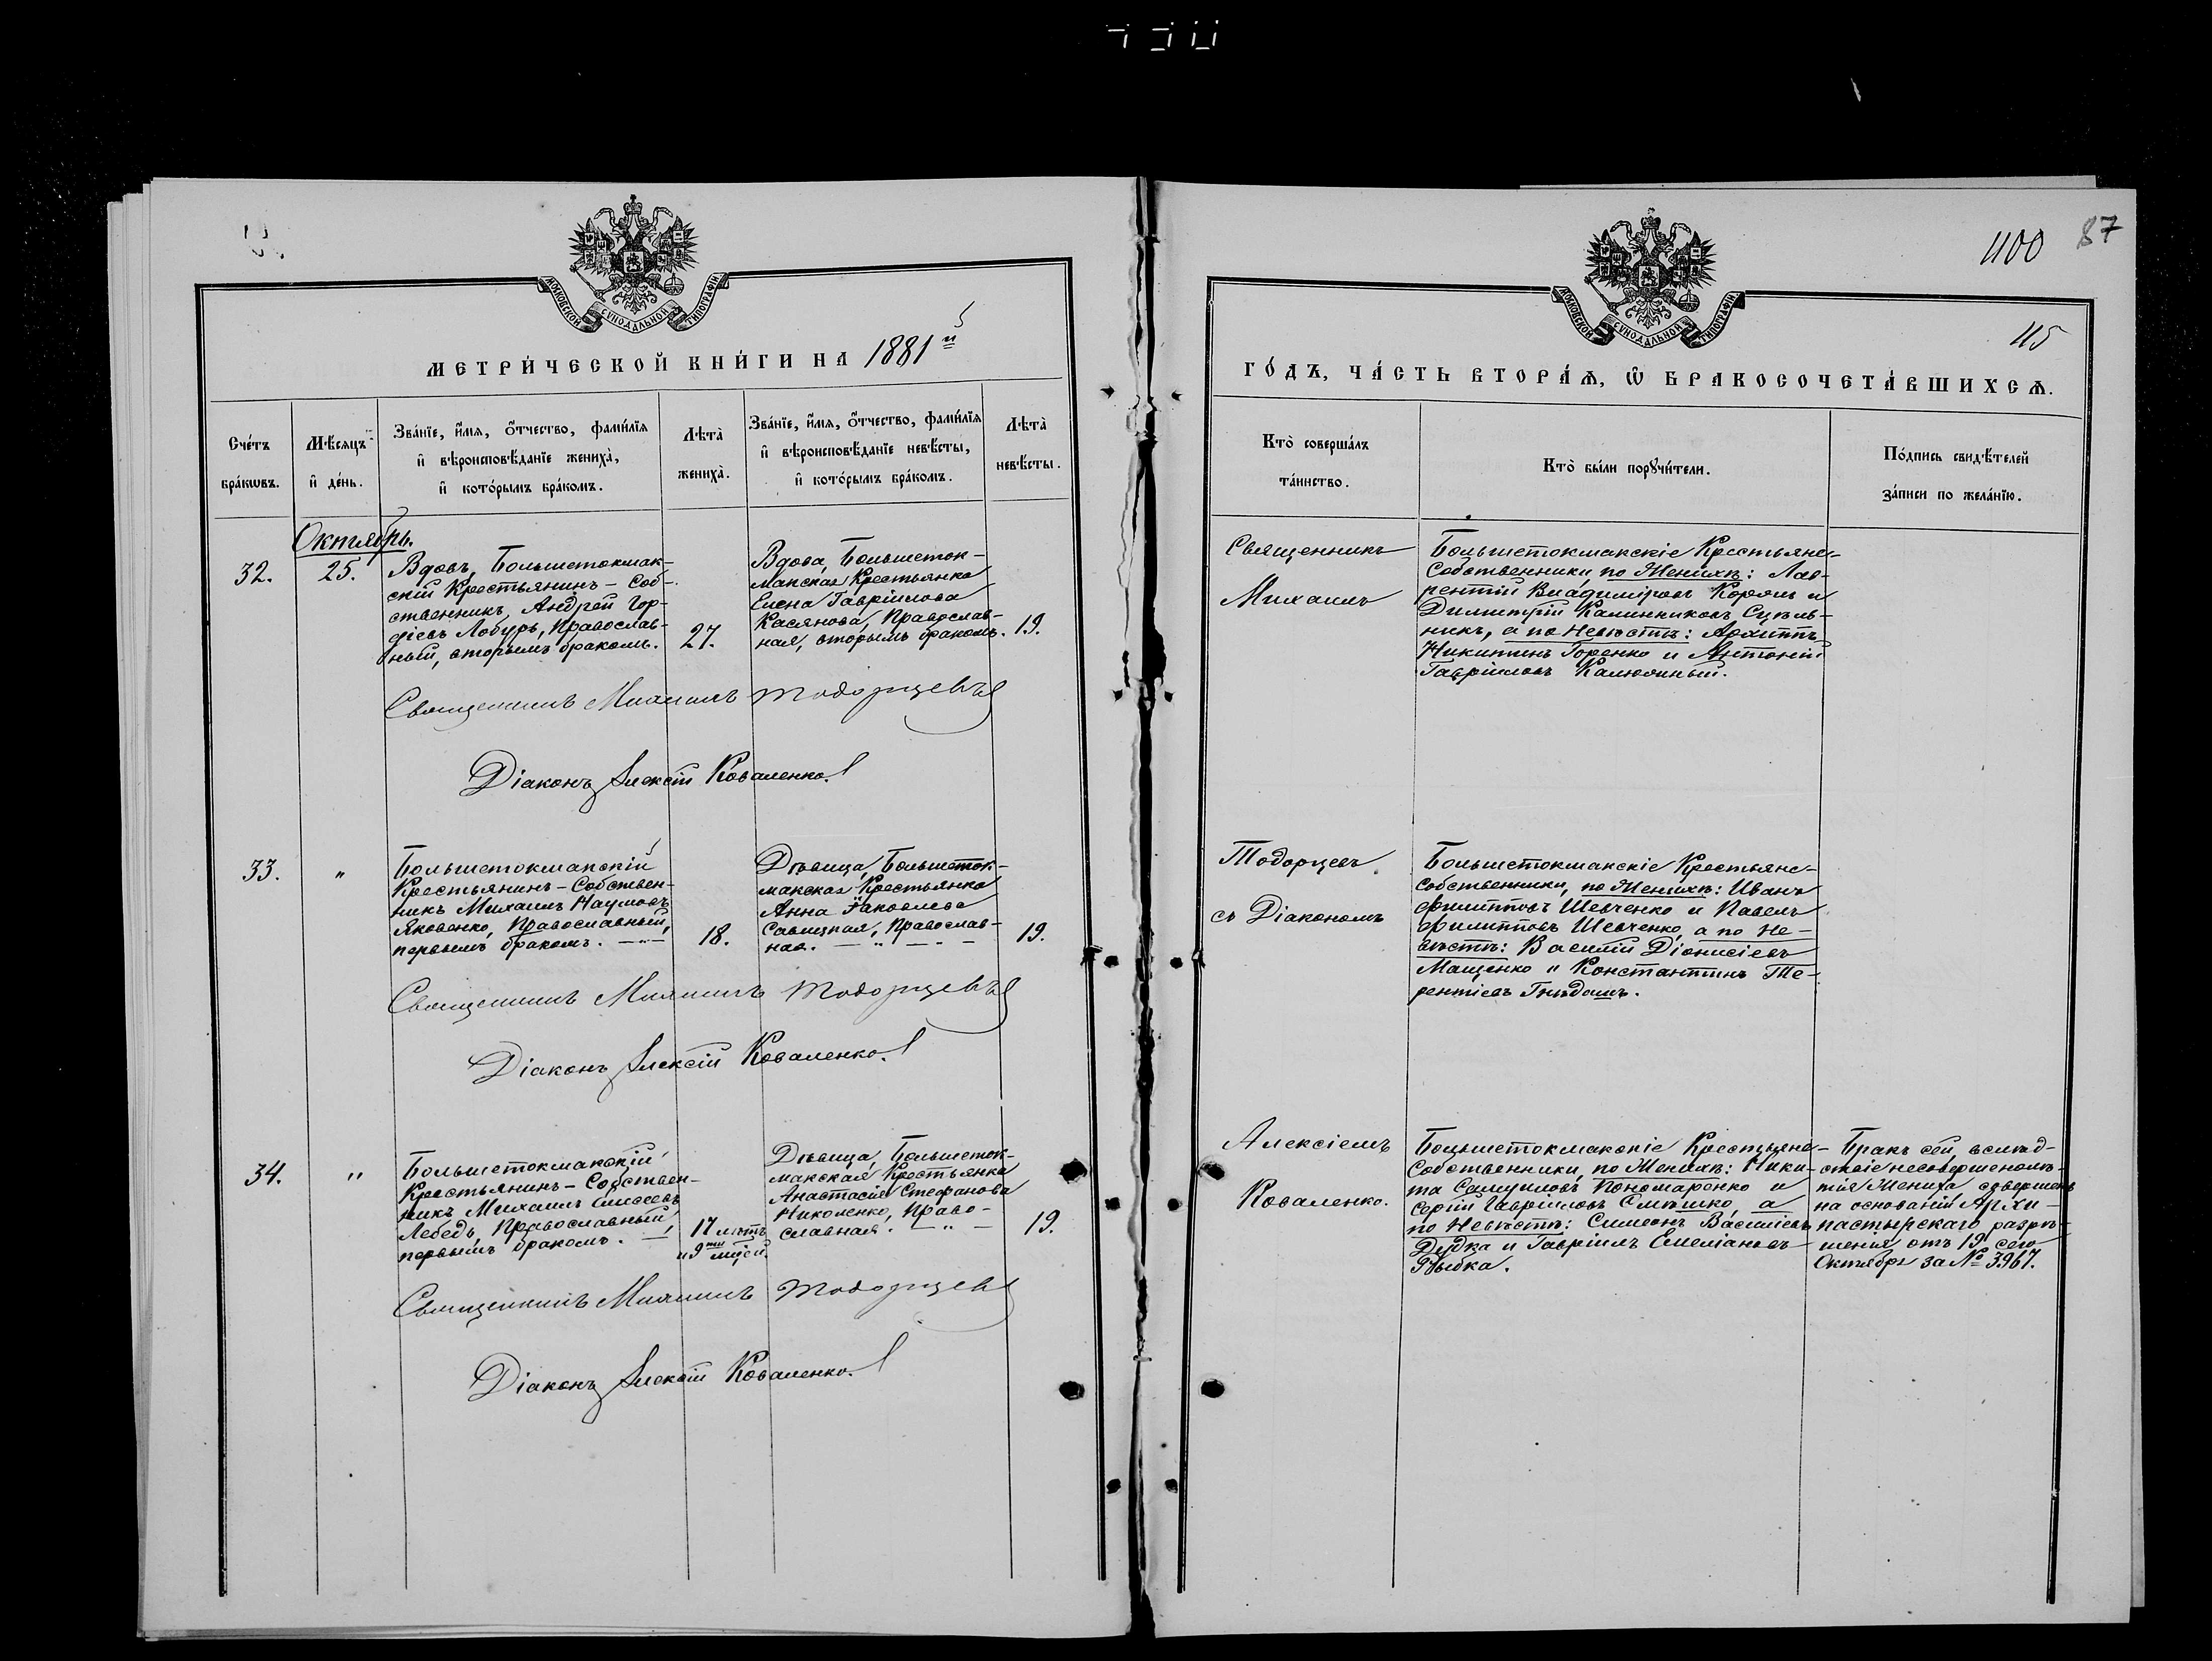 87
1100
115
МОСКОВСКОЙ СѴНОДАЛЬНОЙ ТИПОГРАФІИ
МЕТРИ́ЧЕСКОЙ КНИ́ГИ НА 1881й
Сче́тъ бра́кѡвъ.
Мѣ́сяцъ и҆ де́нь.
Зва́нїе, и҆́мя, ѻ҆́тчество, фами́лїя
и҆ вѣроисповѣ́данїе жениха̀,
и҆ кото́рымъ бра́комъ.
Лѣта̀ жениха̀.
Зва́нїе, и҆́мя, ѻ҆́тчество, фами́лїя
и҆ вѣроисповѣ́данїе невѣ́сты,
и҆ кото́рымъ бра́комъ.
Лѣта̀ невѣ́сты.
Октябрь.
32.
25.
Вдовъ, Большетокмак-
скій Крестьянинъ - Соб-
ственникъ, Андрей Гор-
діевъ Лобуръ, Православ-
ный, вторымъ бракомъ.
27.
Вдова, Большеток-
макская Крестьянка
Елена Гавріилова
Касянова, Православ-
ная, вторымъ бракомъ.
19.
Священникъ Михаилъ Тодорцевъ
Діаконъ Алексій Коваленко.
33.
"
Большетокмакскій
Крестьянинъ - Собствен-
никъ Михаилъ Наумовъ
Яковенко, Православный,
первымъ бракомъ. — " —
18.
Дѣвица, Большеток-
макская Крестьянка
Анна Яковлева
Савицкая, Православ-
ная. — " — —
19.
Священникъ Михаилъ Тодорцевъ
Діаконъ Алексій Коваленко.
34.
"
Большетокмакскій
Крестьянинъ - Собствен-
никъ Михаилъ Елисеевъ
Лебедь, Православный,
первымъ бракомъ. —
17 лѣтъ
и 9ти мцѣй.
Дѣвица, Большеток-
макская Крестьянка
Анастасія Стефанова
Николенко, Право-
славная. — " —
19.
Священникъ Михаилъ Тодорцевъ
Діаконъ Алексій Коваленко.
МОСКОВСКОЙ СѴНОДАЛЬНОЙ ТИПОГРАФІИ
ГО́ДЪ, ЧА́СТЬ ВТОРА́Ѧ, Ѡ҆ БРАКОСОЧЕТА́ВШИХСѦ.
Кто̀ соверша́лъ
та́инство.
Кто̀ бы́ли порꙋчи́тели.
По́дпись свидѣ́телей
за́писи по жела́нїю.
Священникъ
Михаилъ
Большетокмакскіе Крестьяне-
Собственники, по Женихѣ: Лав-
рентій Владиміровъ Король и
Димитрій Калинниковъ
а по Невѣстѣ: Архиппъ
Никитинъ Горенко и Антоній
Гавріиловъ Калюжный.
Тодорцевъ
съ Діакономъ
Большетокмакскіе Крестьяне-
Собственники, по Женихѣ: Иванъ
Филипповъ Шевченко и Павелъ
Филипповъ Шевченко, а по Не-
вѣстѣ: Василій Діонисіевъ
Мащенко и Константинъ Те-
рентіевъ Гнѣдашъ.
Алексіемъ
Коваленко.
Большетокмакскіе Крестьяне-
Собственники, по Женихѣ: Ники-
та Самуиловъ Пономаренко и
Сергій Гавріиловъ Смѣшко, а
по Невѣстѣ: Симеонъ Василіевъ
Дудка и Гавріилъ Емеліановъ
Рыбка.
Бракъ сей, вслѣд-
ствіе несовершенолѣ-
тія Жениха совершенъ
на основаніи Архи-
пастырскаго разрѣ-
шенія отъ 19 сего
Октября за № 3967.